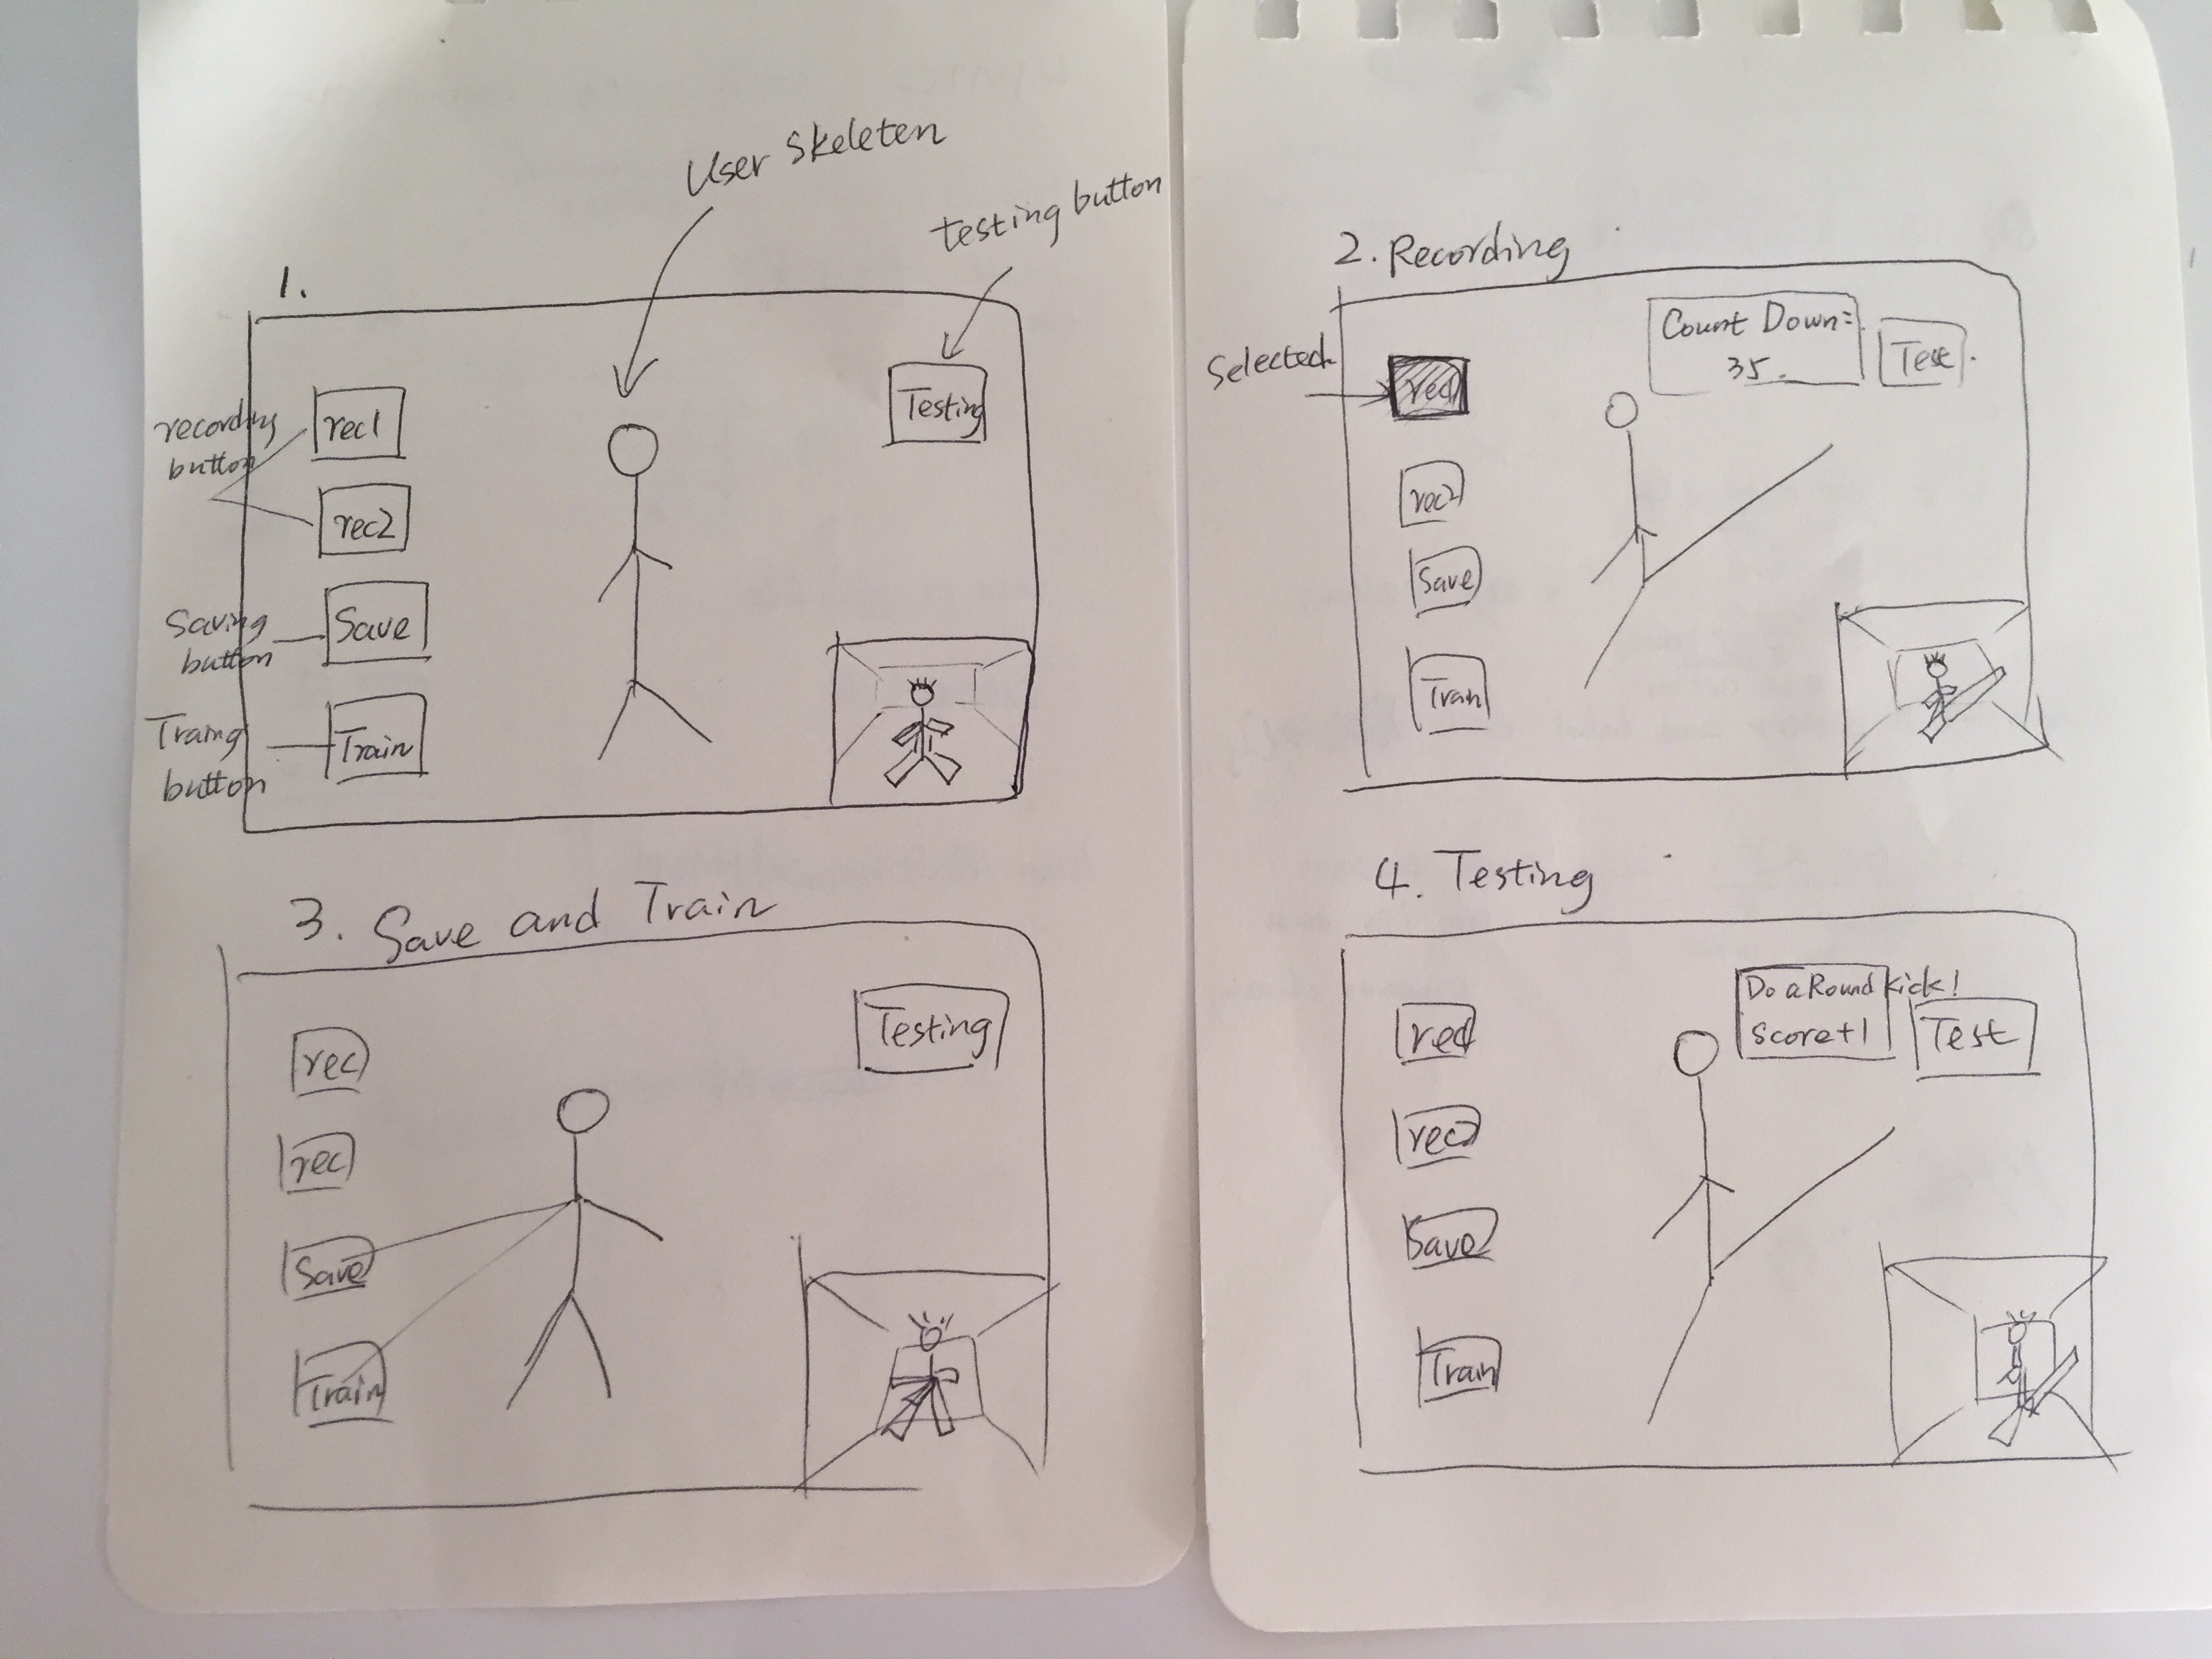 User skeleten
testing button
1.
Testing
recording
button
rec1
rec2
Saving
button
Save
Traing
button
Train
2. Recording
Selected
rec1
Count Down:
35.
Test
rec2
Save
Train
3. Save and Train
Testing
rec
rec
Save
Train
4. Testing
rec1
Do a Round kick!
score+1
Test
rec2
Save
Train